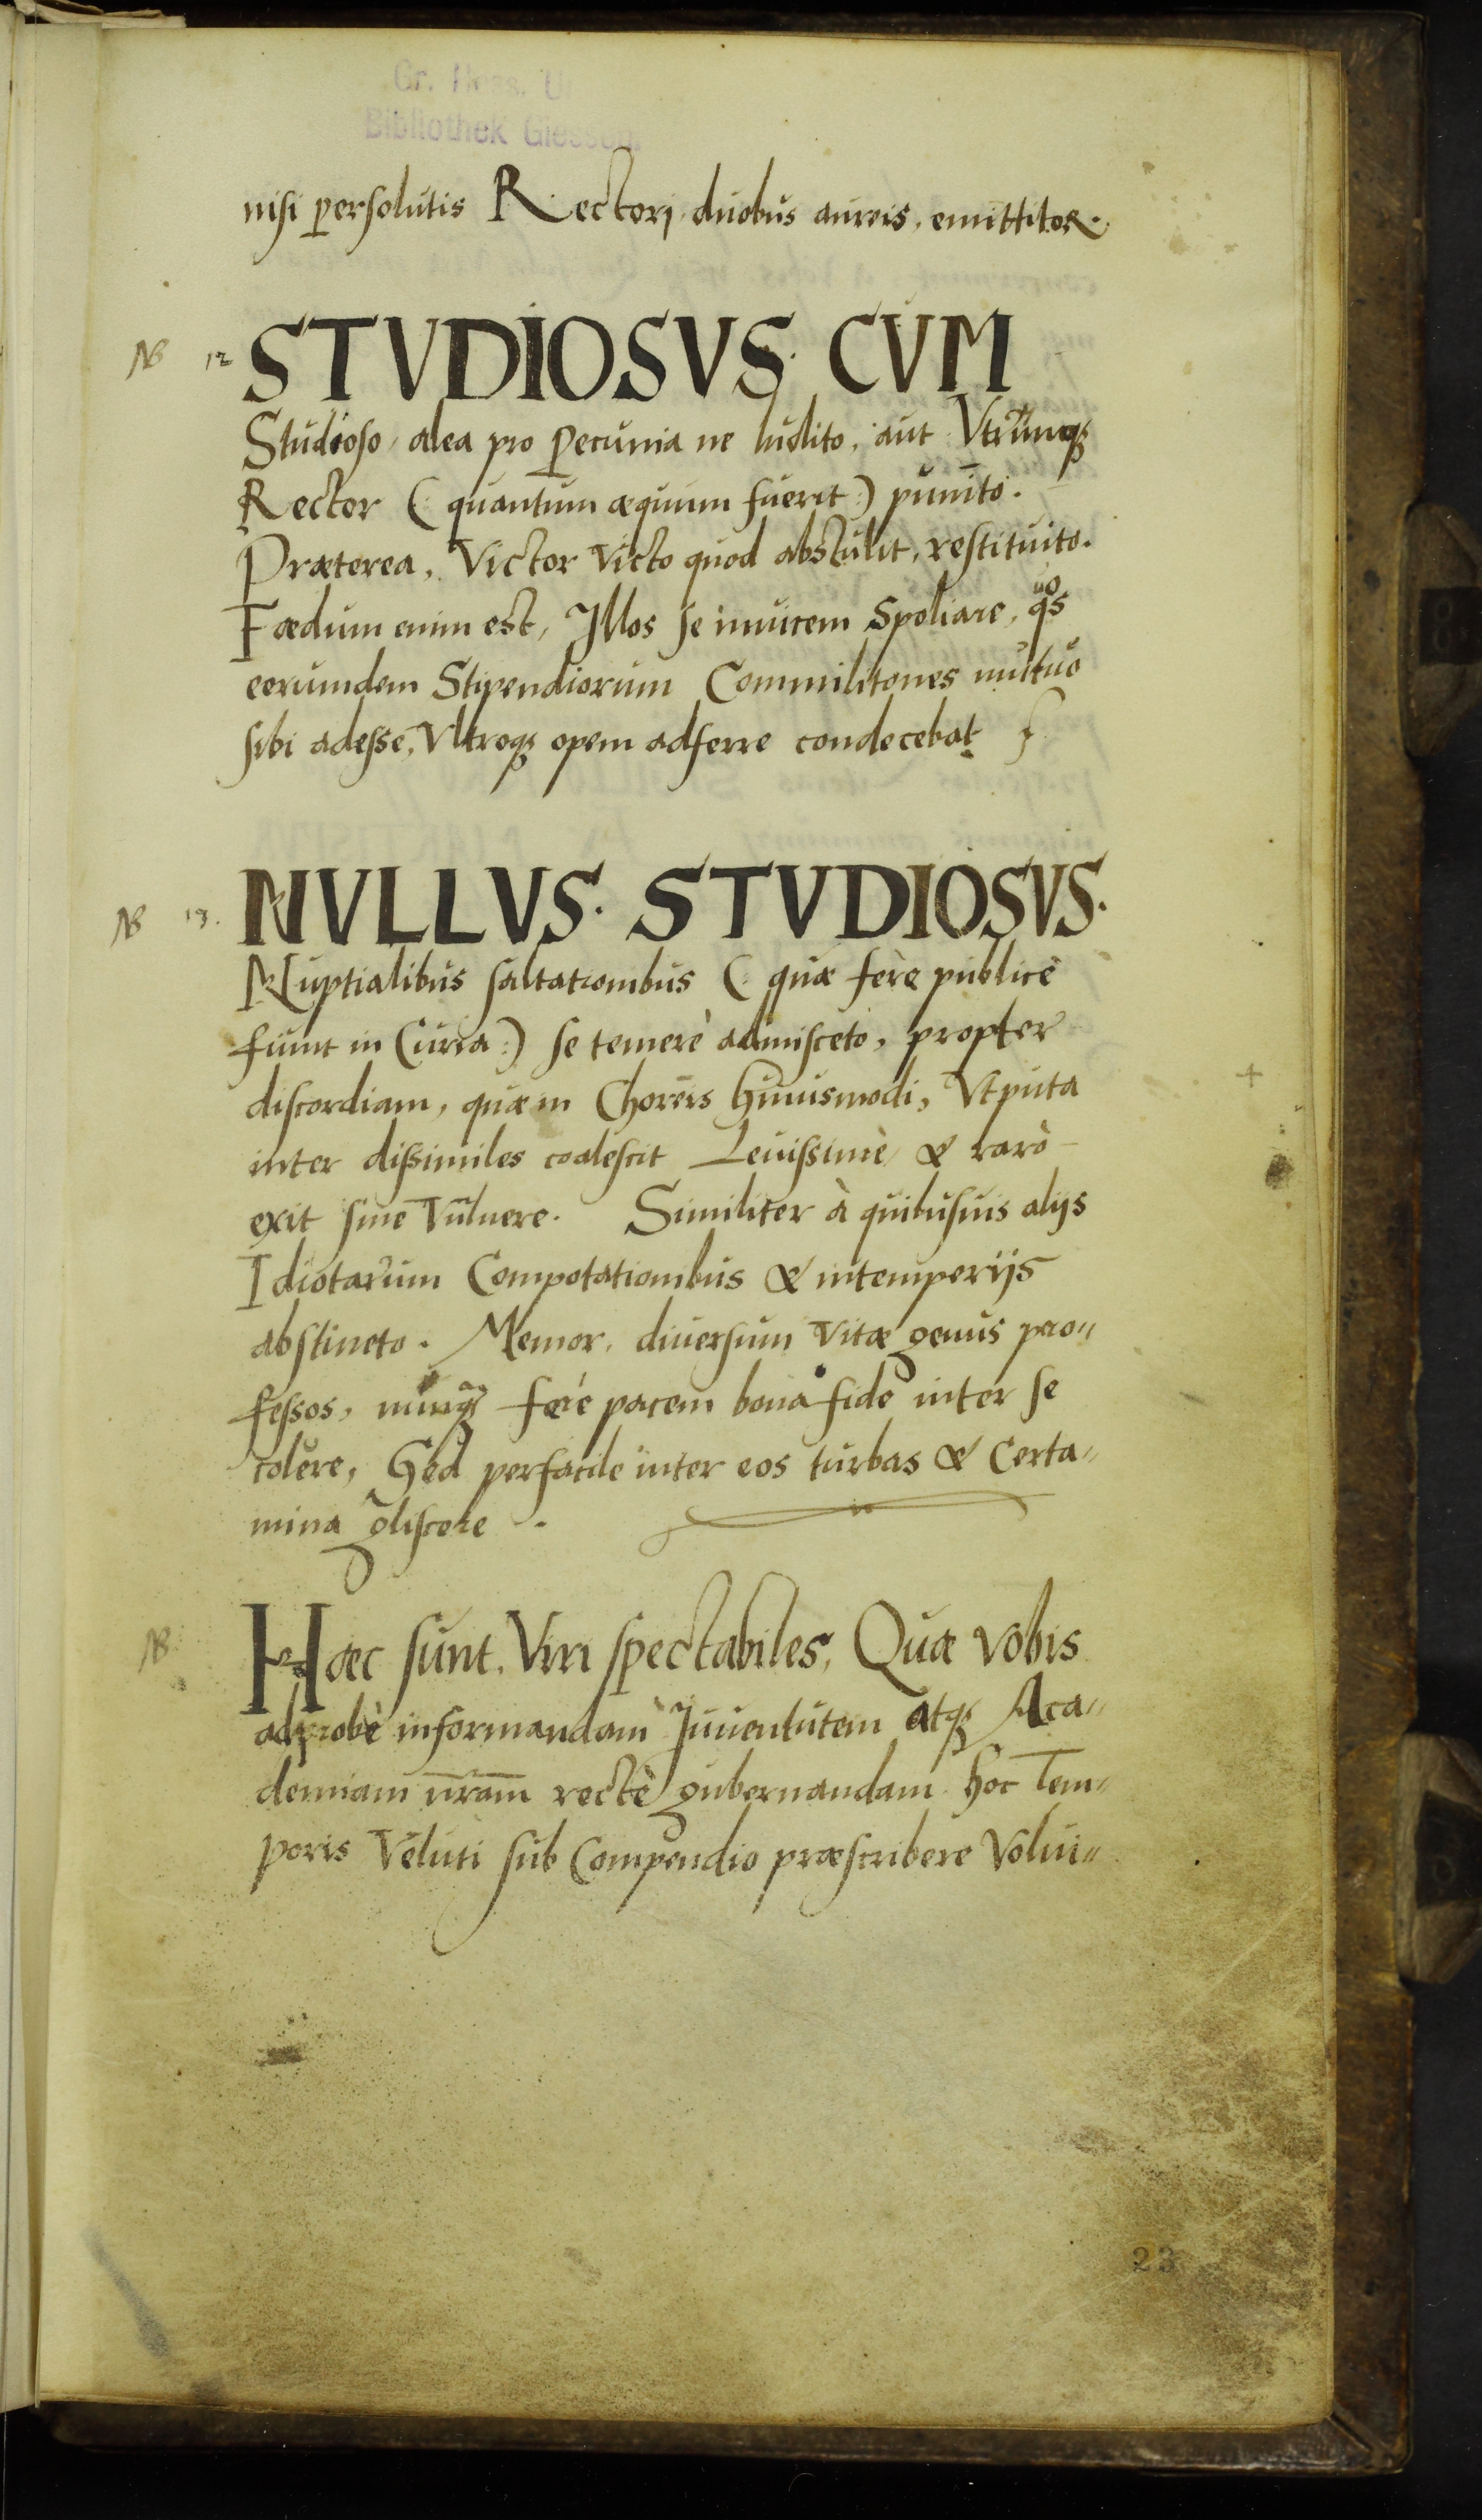 Bibliothek Giessen.
nisi persolutis Rectori duobus aureis, emittitor.
NB 12 STVDIOSVS. CVM
Studioso, alea pro Pecunia ne ludito, aut Vtrūnqꝫ
Rector (: quantum æquum fuerit :) punito.
Præterea, Victor Victo quod abstulit, restituito.
Fœdum enim est, Illos se inuicem Spoliare, qͧᵒs
eorumdem Stipendiorum Commilitones muttuo
sibi adesse, Vltroqꝫ opem adferre condecebat
NB 13. NVLLVS. STVDIOSVS.
Nuptialibus saltationibus (: quæ ferè publicè
fiunt in Curia :) se temerè admisceto, propter
discordiam, quæ in Choreis huiusmodi, Vtputa
inter dissimiles coalescit Leuissimè, & rarò
exit sine Vulnere. Similiter à quibusuis alijs
Idiotarum Compotationibus & intemperijs
abstineto. Memor, diuersum Vitæ genus pro„
fessos, nunqꝫ ferè pacem bona fide inter se
colere, Sed perfacile inter eos turbas & Certa„
mina gliscere.
NB Hæc sunt, Viri spectabiles, Quæ vobis
ad probè informandam Iuuentutem atqꝫ Aca„
demiam nr̄am rectè gubernandam hoc Tem„
poris Veluti sub Compendio præscribere Volui„
23